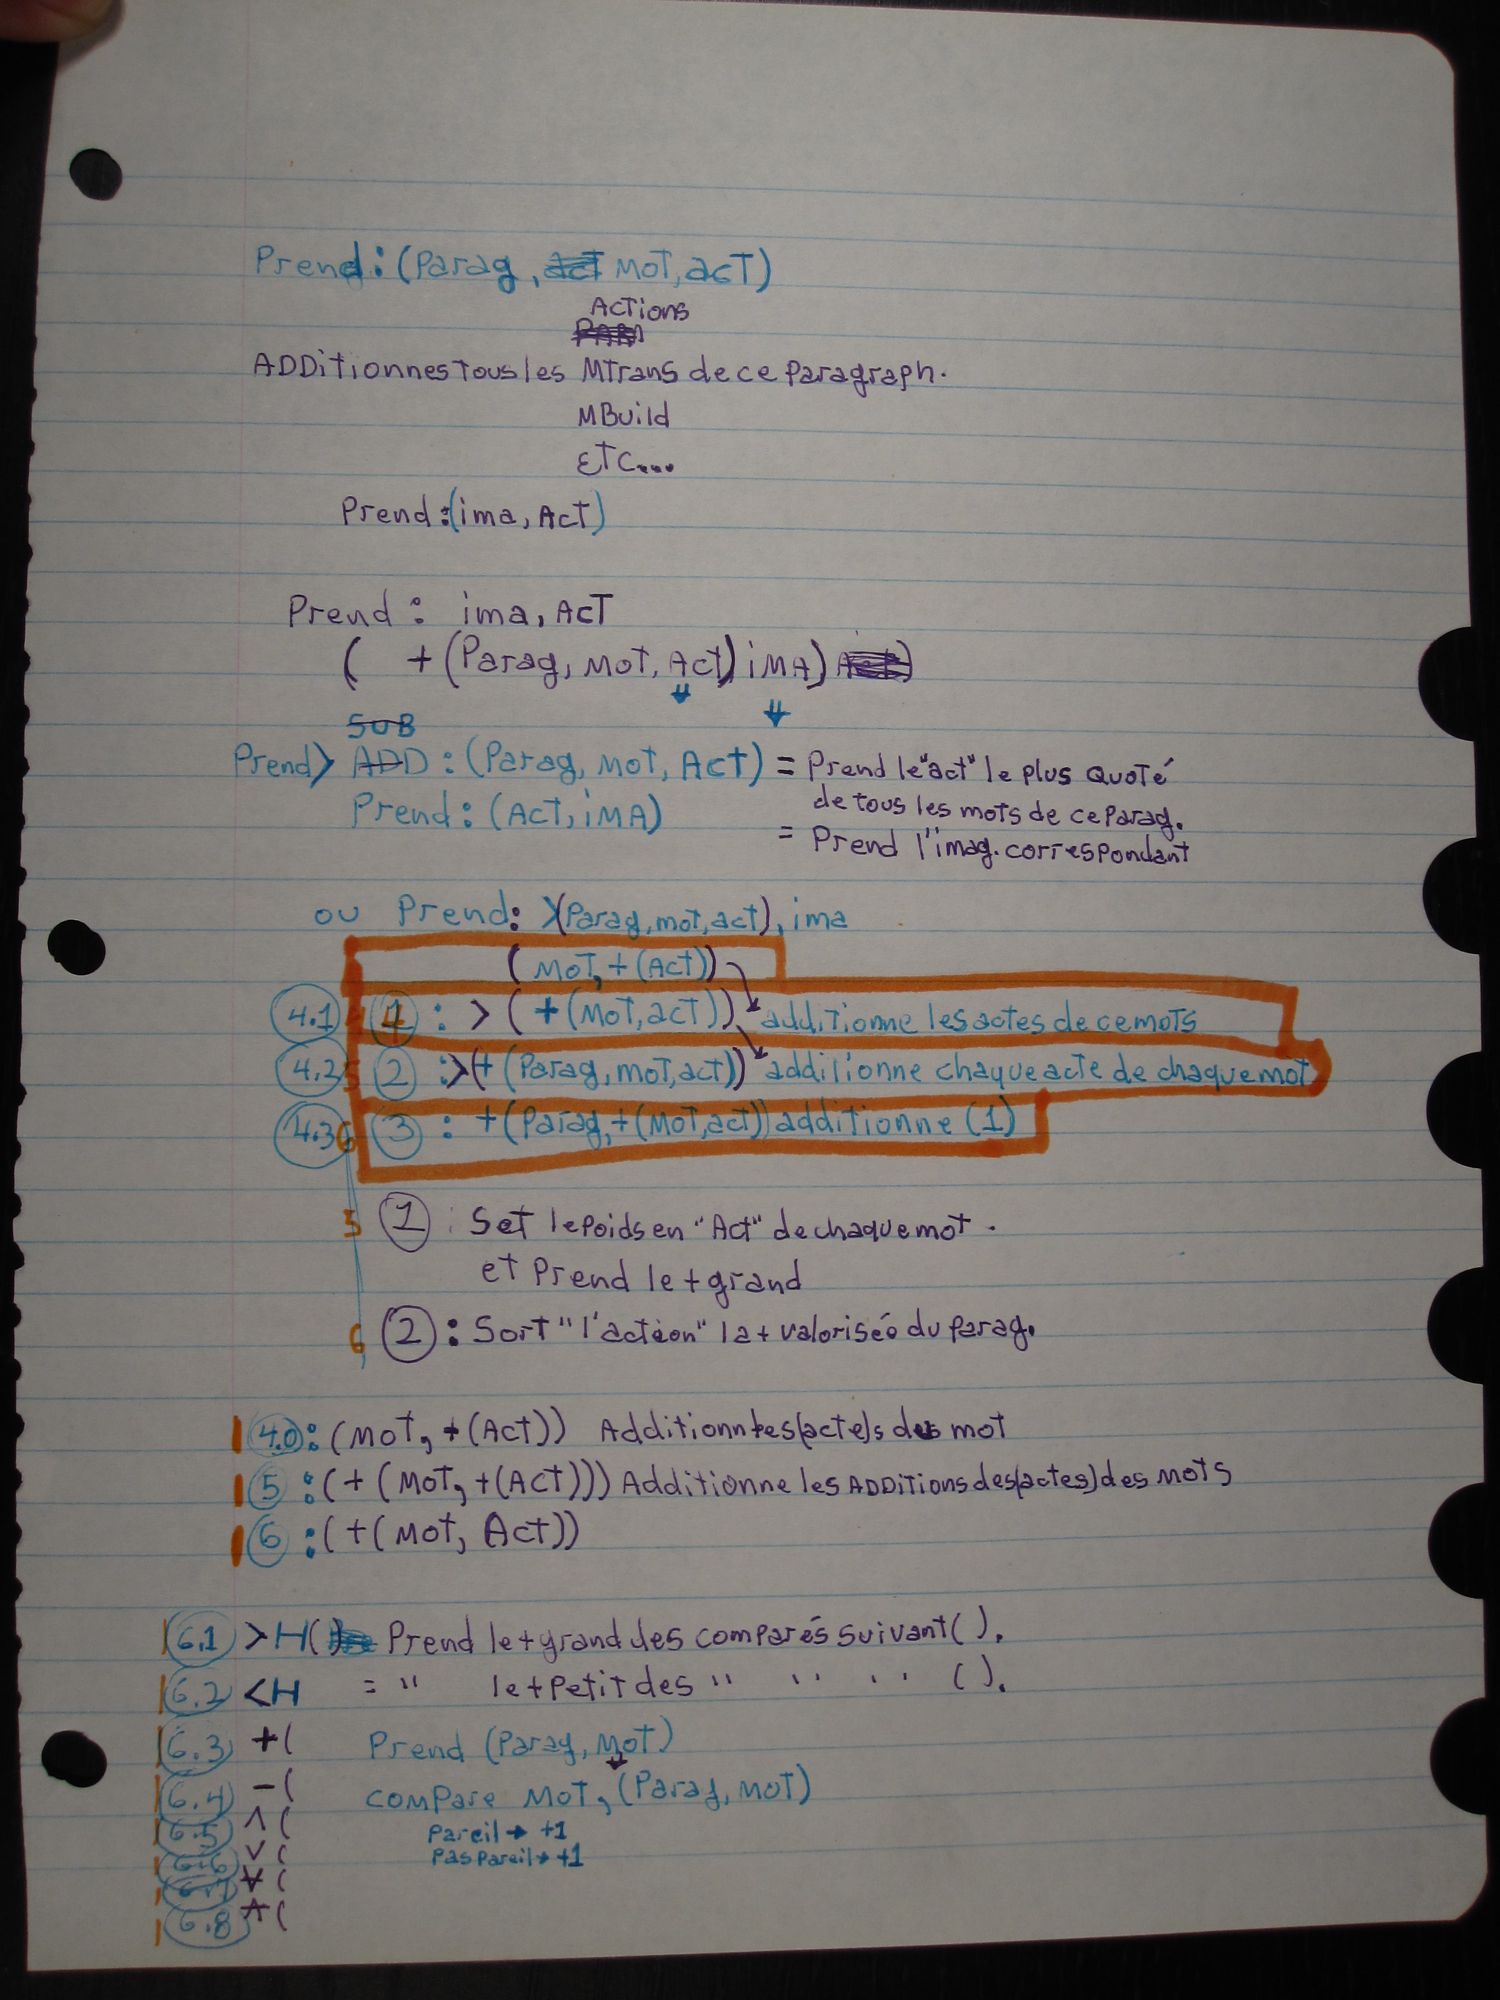 Prend:(Parag, act MOT, acT)
ACTions
PARA
ADDitionnes Tous les MTrans de ce paragraph.
MBuild
ETC...
Prend:(ima, AcT)
Prend: ima, AcT
( + (Parag, MOT, AcT) iMA) Act)
SUB
Prend> ADD : (Parag, MOT, AcT) = Prend le "act" le plus quoté
de tous les mots de ce parag.
Prend: (AcT, iMA)
= Prend l'imag. correspondant
ou Prend: >(Parag, mot, act), ima
(MOT, +(AcT))
4.1 1 : > ( + (MOT, acT)) additionne les actes de ce mots
4.2 5 2 :>(+ (Parag, mot, act)) additionne chaque acte de chaque mot
4.3 6 3 : +(Parag, +(MOT, act)) additionne (1)
5 1 : Set le poids en "Act" de chaque mot.
et Prend le + grand
6 2 : Sort "l'action" la + valorisée du parag.
4.0 : (MOT, +(AcT)) Additionn les (acte)s des mot
5 : (+ (MOT, +(AcT))) Additionne les ADDiTions des (actes) des mots
6 : (+ (MOT, AcT))
6.1 >H( ) Prend le + grand des comparés suivant ( ).
6.2 <H = " le + petit des " " " ( ).
6.3 +( Prend (Parag, MOT)
6.4 -( compare MOT, (Parag, MOT)
6.5 ∧ ( Pareil → +1
6.6 ∨ ( Pas Pareil → +1
6.7 ∀ (
6.8 ⩑ (